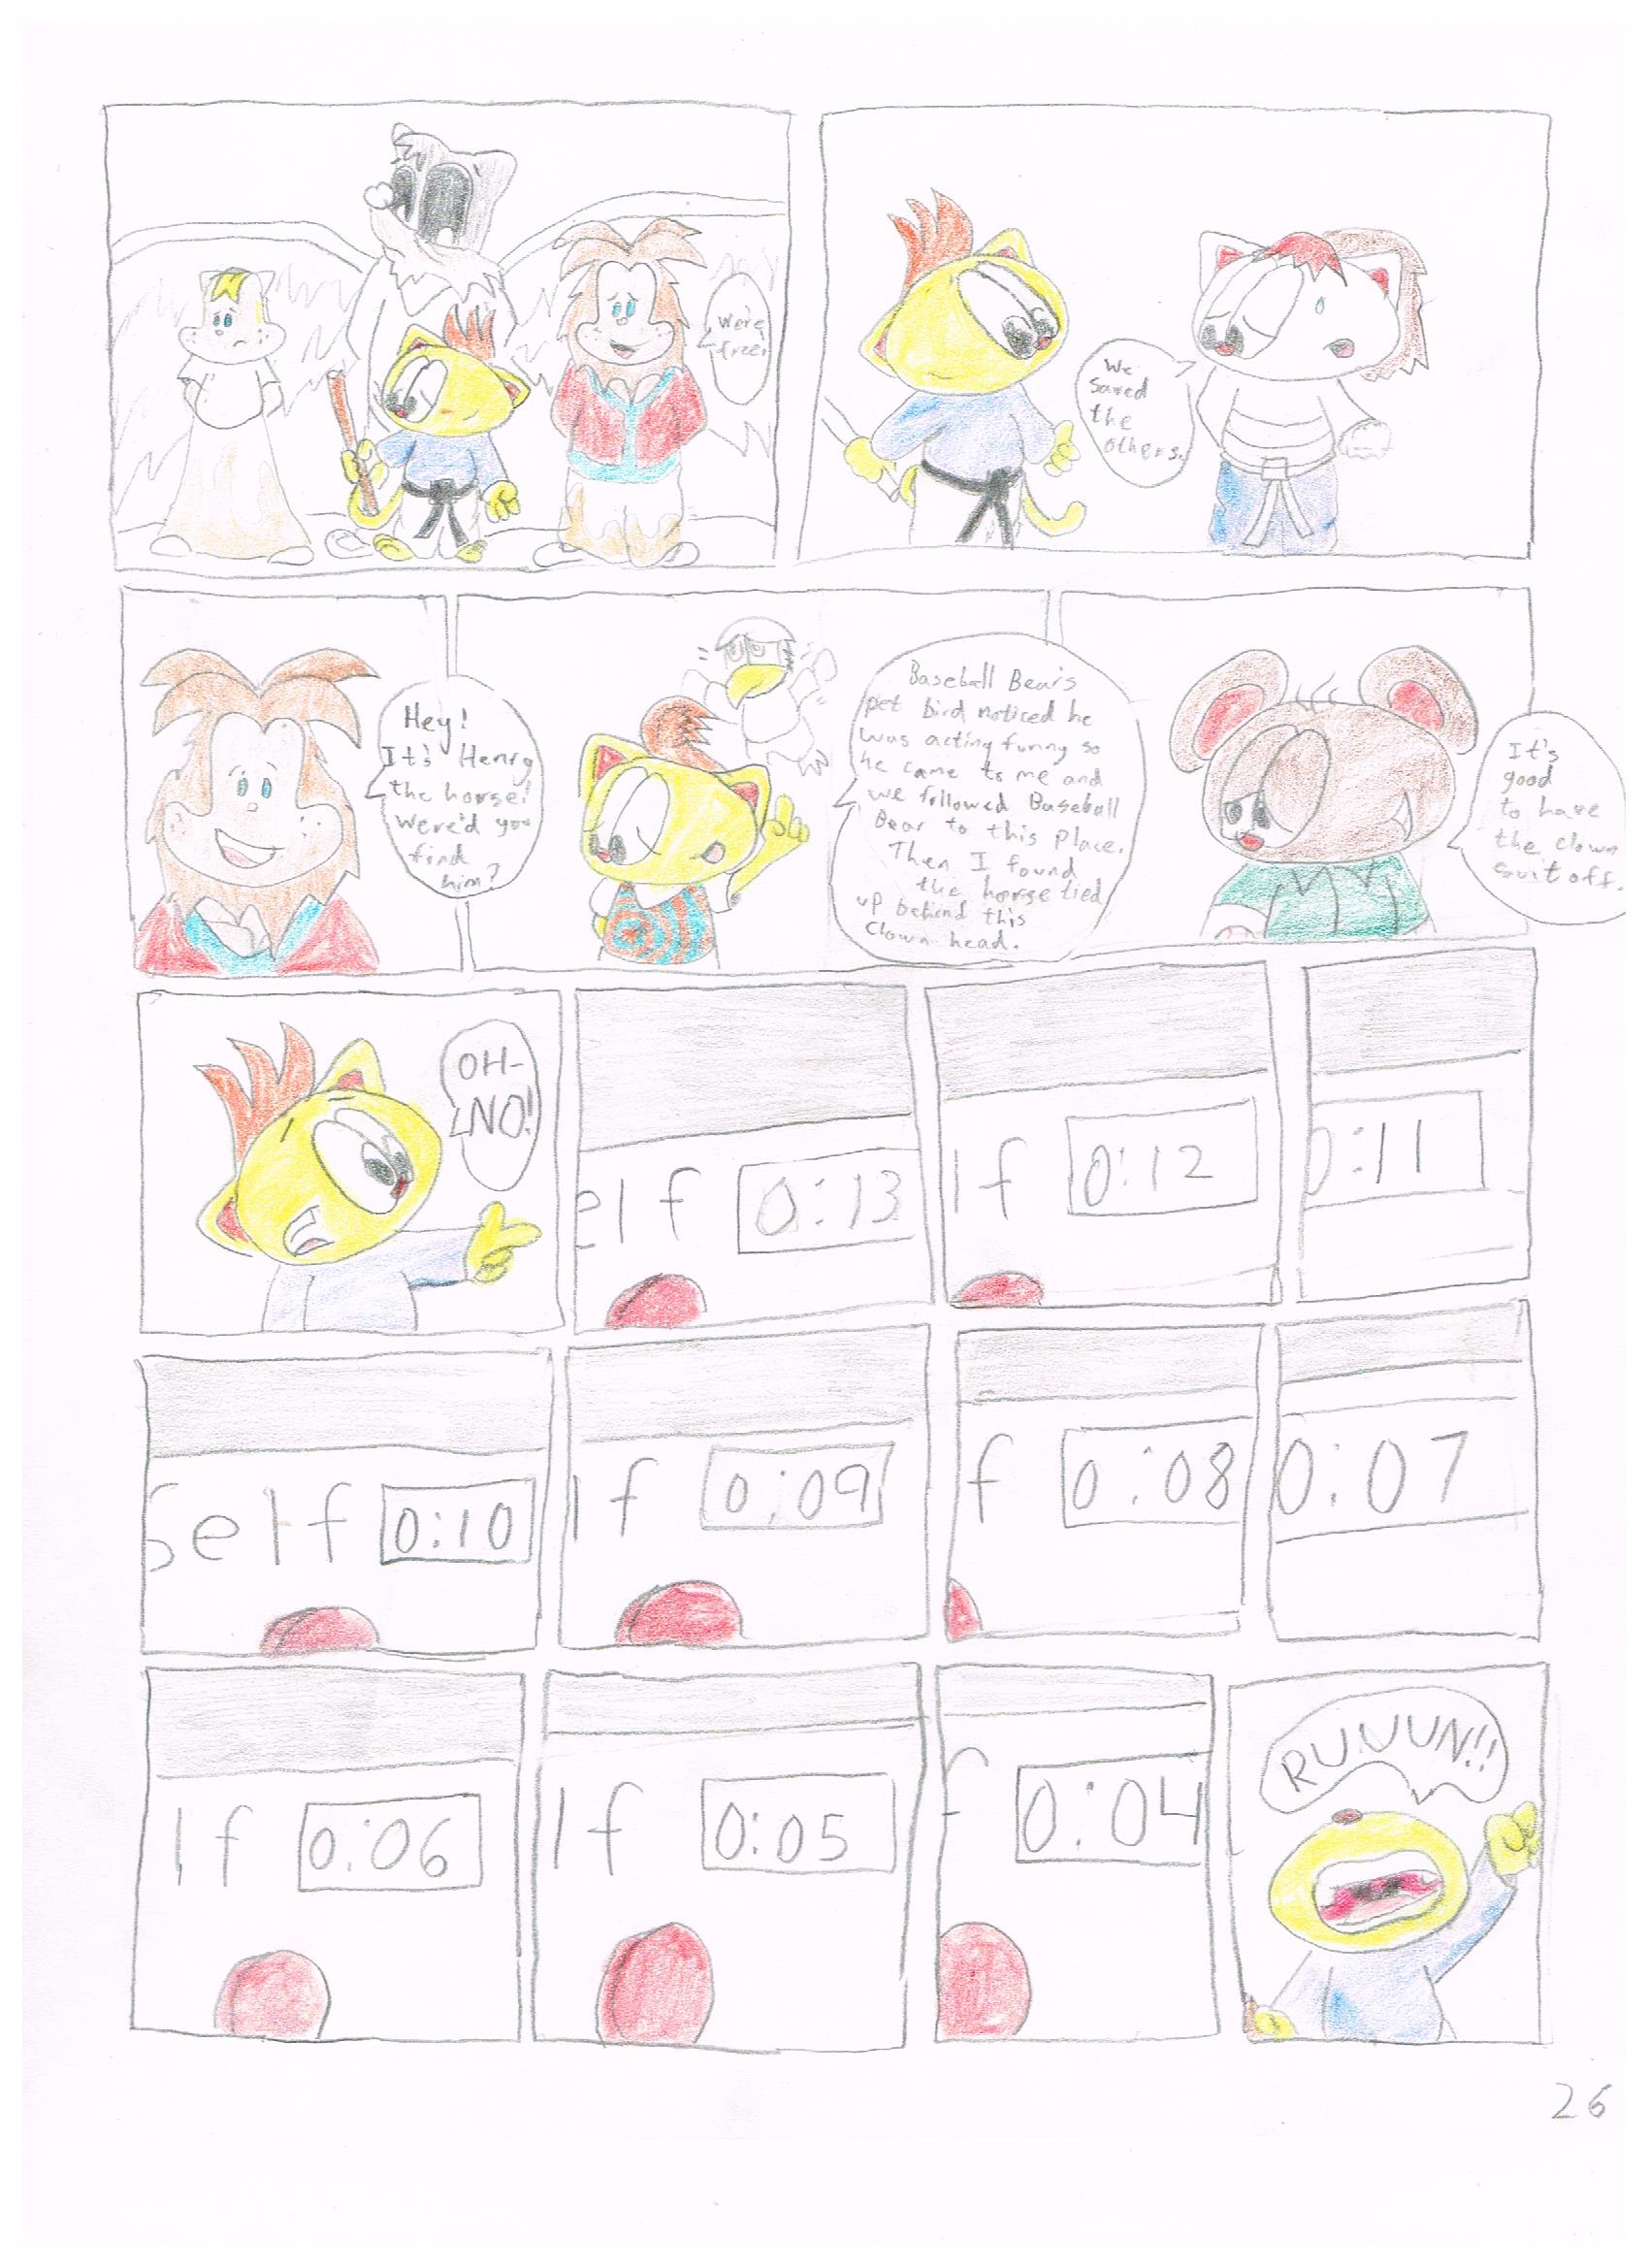 We're
free.
We
saved
the
others.
Hey!
It's Henry
the horse!
Were'd you
find
him?
Baseball Bear's
pet bird noticed he
was acting funny so
he came to me and
we followed Baseball
Bear to this place.
Then I found
the horse tied
up behind this
clown head.
It's
good
to have
the clown
suit off.
OH-
NO!
elf 0:13
lf 0:12
0:11
Self 0:10
lf 0:09
f 0:08
0:07
lf 0:06
lf 0:05
f 0:04
RUUUN!!
26